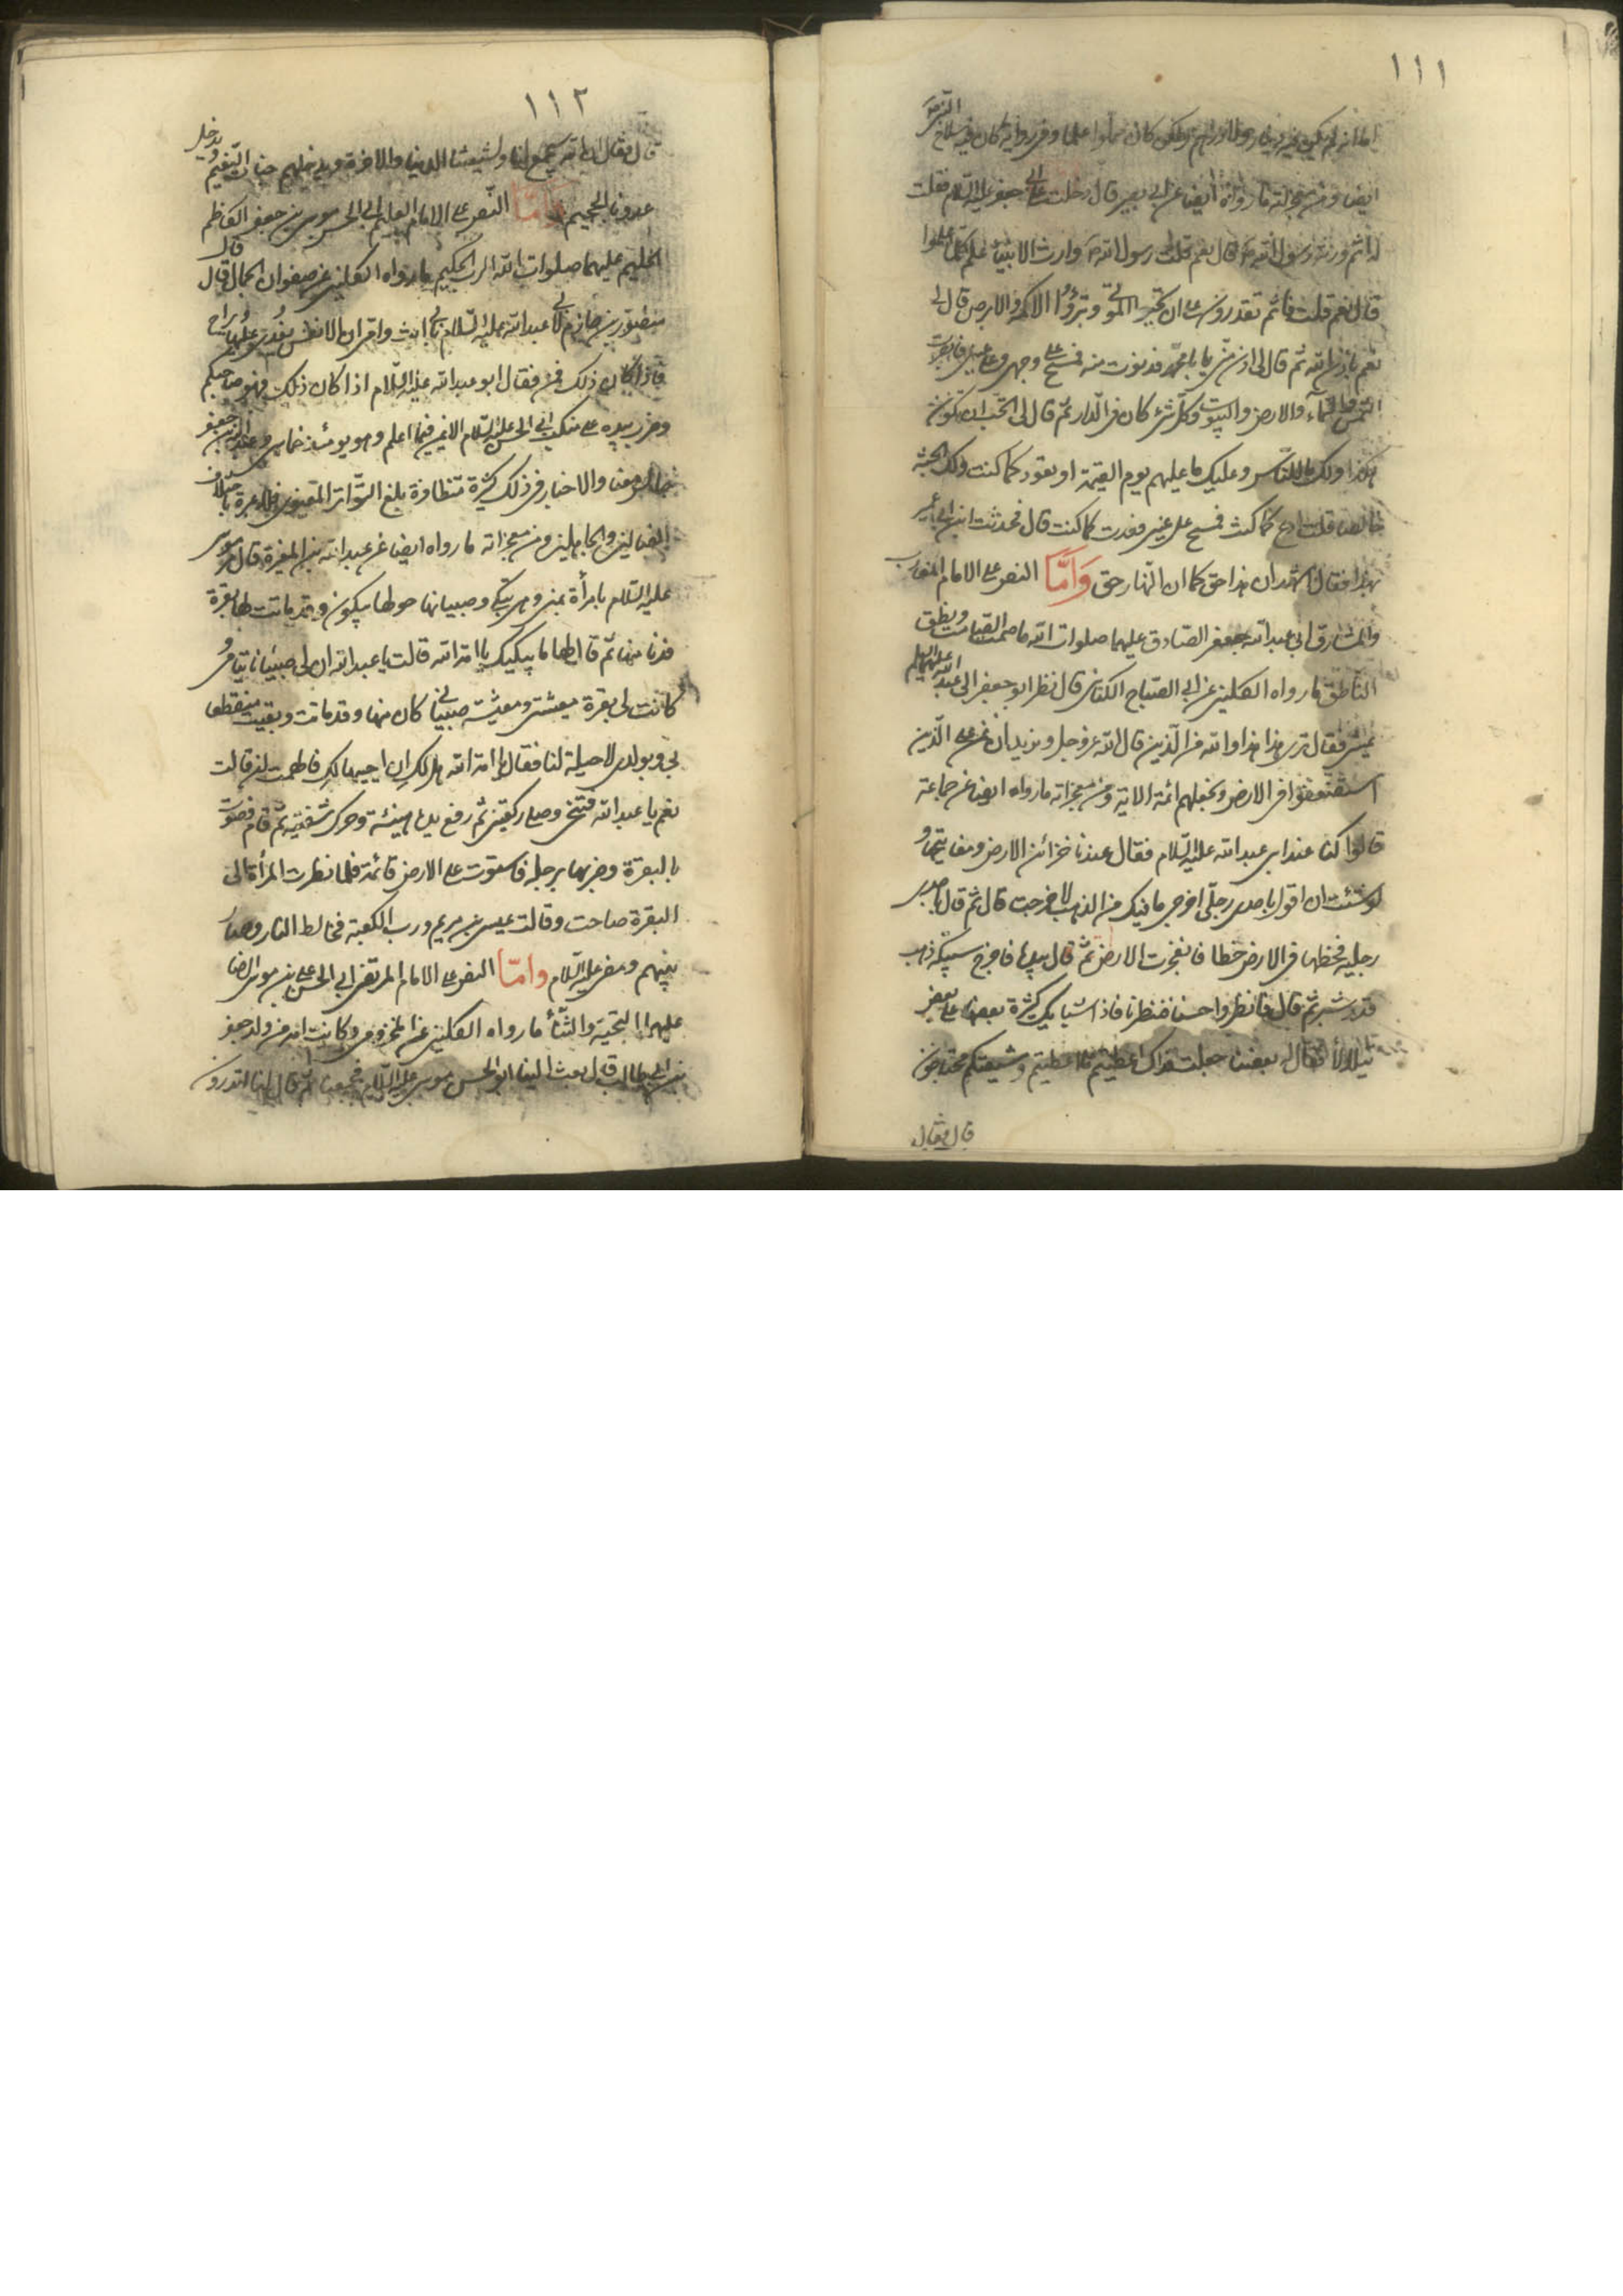 ١١١
اما انه لم يكن فيه دينار ولا درهم ولكن كان مملوا علما وفى رواية كان فيه سلاح النبى ص
ايضا ومن معجزاته ما رواه ايضا عن ابى بصير قال دخلت على ابى جعفر عليه السلام فقلت
له انتم ورثة رسول الله ص قال نعم قلت رسول الله ص وارث الانبياء علم كلما علموا
قال نعم قلت فانتم تقدرون على ان تحيوا الموتى وتبرؤا الاكمه والابرص قال لى
نعم باذن الله ثم قال لى ادن منى يا با محمد فدنوت منه فمسح على وجهى وعلى عينى فابصرت
الشمس والسماء والارض والبيوت وكل شئ كان فى الدار ثم قال لى اتحب ان تكون
هكذا ولك ما للناس وعليك ما عليهم يوم القيمة او تعود كما كنت ولك الجنة
خالصا قلت اعود كما كنت فمسح على عينى فعدت كما كنت قال فحدثت ابن ابى عمير
بهذا فقال اشهد ان هذا حق كما ان النهار حق وَاَمَّا النص على الامام المغارب
والمشارق ابى عبد الله جعفر الصادق عليهما صلوات الله ما صمت الصامت ونطق
الناطق ما رواه الكلينى عن ابى الصباح الكنانى قال نظر ابو جعفر الى ابى عبد الله عليهما السلم
يمشى فقال ترى هذا هذا والله من الذين قال الله عز وجل ونريد ان نمن على الذين
استضعفوا فى الارض ونجعلهم ائمة الاية ومن معجزاته ما رواه ايضا عن جماعة
قالوا كنا عند ابى عبد الله عليه السلام فقال عندنا خزائن الارض ومفاتيحها و
لو شئت ان اقول باحدى رجلى اخرجى ما فيك من الذهب لاخرجت قال ثم قال باحدى
رجليه فخطها فى الارض خطا فانفجرت الارض ثم قال بيده فاخرج سبيكة ذهب
قدر شبر ثم قال فانظروا حسنا فنظرنا فاذا سبايك كثيرة بعضها على بعض
يتلألأ فقال له بعضنا جعلت فداك اعطيتم ما اعطيتم وشيعتكم محتاجون
قال فقال
١١٢
قال فقال ان الله سيجمع لنا ولشيعتنا الدنيا والاخرة ويدخلهم جنات النعيم ويدخل
عدونا الجحيم وَاَمَّا النص على الامام العليم ابى الحسن موسى بن جعفر الكاظم
الحليم عليهما صلوات الله الرب الحكيم ما رواه الكلينى عن صفوان الجمال قال قال
منصور بن حازم لابى عبد الله عليه السلام بابى انت وامى ان الانفس يُغدى عليها ويُراح
فاذا كان ذلك فمن فقال ابو عبد الله عليه السلام اذا كان ذلك فهو صاحبكم
وضرب بيده على منكب ابى الحسن عليه السلام الايمن فيما اعلم وهو يومئذ خماسى وعبد الله بن جعفر
جالس معنا والاخبار فى ذلك كثيرة متظافرة بلغ التواتر المعنوى فلا عبرة بخلاف
الضالين والجاهلين ومن معجزاته ما رواه ايضا عن عبد الله بن المغيرة قال مر موسى
عليه السلام بامرأة بمنى وهى تبكى وصبيانها حولها يبكون وقد ماتت لها بقرة
فدنا منها ثم قال لها ما يبكيك يا امة الله قالت يا عبد الله ان لى صبيانا يتامى و
كانت لى بقرة معيشتى ومعيشة صبيانى كان منها وقد ماتت وبقيت منقطعا
بى وبولدى لا حيلة لنا فقال يا امة الله هل لك ان احييها لك فالهمت ان قالت
نعم يا عبد الله فتنحى وصلى ركعتين ثم رفع يده هنيئة وحرك شفتيه ثم قام فصوت
بالبقرة وضربها برجله فاستوت على الارض قائمة فلما نظرت المرأة الى
البقرة صاحت وقالت عيسى بن مريم ورب الكعبة فخالط الناس وصار
بينهم ومضى عليه السلام وامّا النص على الامام المرتضى ابى الحسن على بن موسى الرضا
عليهما التحية والثناء ما رواه الكلينى عن المخزومى وكانت امه من ولد جعفر
بن ابى طالب قال بعث الينا ابو الحسن موسى عليه السلام فجمعنا ثم قال لنا اتدرون